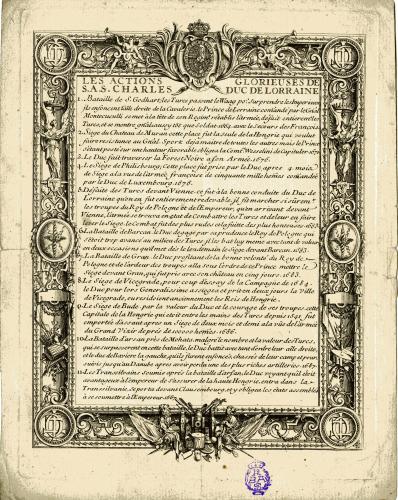 LES ACTIONS GLORIEUSES DE
S.A.S. CHARLES DUC DE LORRAINE
1. Bataille de St. Godhart, les Turcs passent le Waag pr. Surprendre les Imperiaux
ils enfoncent l'aîlle droite de la Cavalerie, le Prince de Lorraine
Montecuculli se met à la tête de son Regimt. rétablit l'armée, défait entierelles
Turcs, et se montre
2. Siége du Chateau de Muran cette place fut la seule de la Hongrie qui voulut
faire resistance au Génâl. Spork deja maitre de toutes les autres mais le Prince
s'étant posté sur une hauteur favorable obligea la Comt. Wesselini de Capituler 1670.
3. Le Duc fait traverser la Forest Noire a son Armée. 1676.
4. Le Siége de Philisbourg, cette place fut prise par le Duc apres 4 mois
de Siege a la vue de l'armée françoise de cinquante mille hommes
par le Duc de Luxembourg. 1676.
5. Défaite des Turcs devant Vienne, ce fut à la bonne conduite du Duc de
Lorraine qu'on en fut entierement redevable, il fit marcher
les troupes du Roy de Pologne et de l'Empereur, qu'en arrivant devant
Vienne, l'armée se trouva en état de Combattre les Turcs et de leur en faire
lever le Siege, le Combat fut des plus rudes et la fuitte des plus honteuses. 1683.
6. La Bataille de Barcan le Duc dégage par sa prudence le Roy de Pologne qui
s'étoit trop avancé au milieu des Turcs, il les bat luy même avec tant de valeur
en deux occasions qu'il met dès le lendemain le Siége devant Barcan. 1683.
7. La Bataille de Gran. le Duc profitant de la bonne volonté du Roy de
Pologne et de l'ardeur des troupes alla sous l'ordre de ce Prince mettre le
Siége devant Gran, qui fut pris avec son château en cinq jours. 1683.
8. Le Siége de Vicegrade, pour coup d'essay de la Campagne de 1684.
le Duc pour lors Generalissime assiegea et prit en deux jours la Ville
de Vicegrade, ou residoient anciennement les Rois de Hongrie.
9. Le Siége de Bude par la valeur du Duc et le courage de ses troupes, cette
Capitale de la Hongrie qui étoit entre les mains des Turcs depuis 1541, fut
emportée d'assaut apres un Siége de deux mois et demi a la vüe de l'armée
du Grand Visir de prés de hommes. 1686.
10. La Bataille d'arsan prés de Mohats, malgré le nombre et la valeur des Turcs,
qui se surpasserent en cette bataille, le Duc battit avec tant d'ordre leur aîle droite,
et le duc de Baviere la gauche, qu'ils furent enfoncés, chassés de leur camp et pour-
suivis jusqu'au Danube apres avoir perdu une des plus riches artilleries. 1687.
11. Les Transilvains Soumis apres la bataille d'arsan, le Duc voyant qu'il étoit
avantageux à l'empereur de s'assurer de la haute Hongrie, entra dans la
Transilvanie, se porta devant Clausembourg, et y obligea les états assemblés
a se soumettre à l'Empereur. 1687.